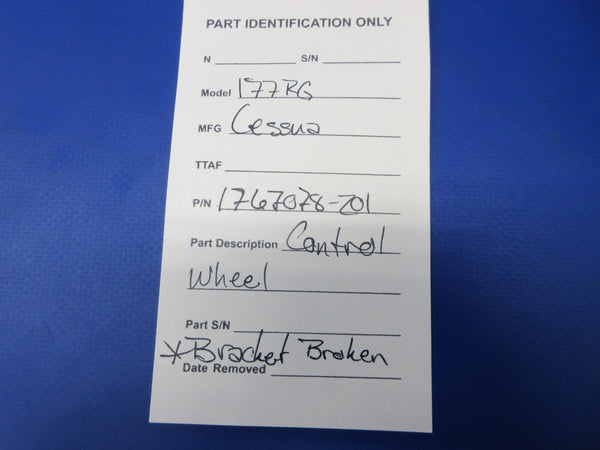 PART IDENTIFICATION ONLY
N S/N
Model 177RG
MFG Cessna
TTAF
P/N 1767078-201
Part Description Control
Wheel
Part S/N
*Bracket Broken
Date Removed